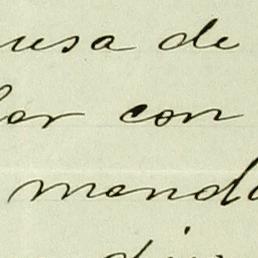 usa de
lar con
manda